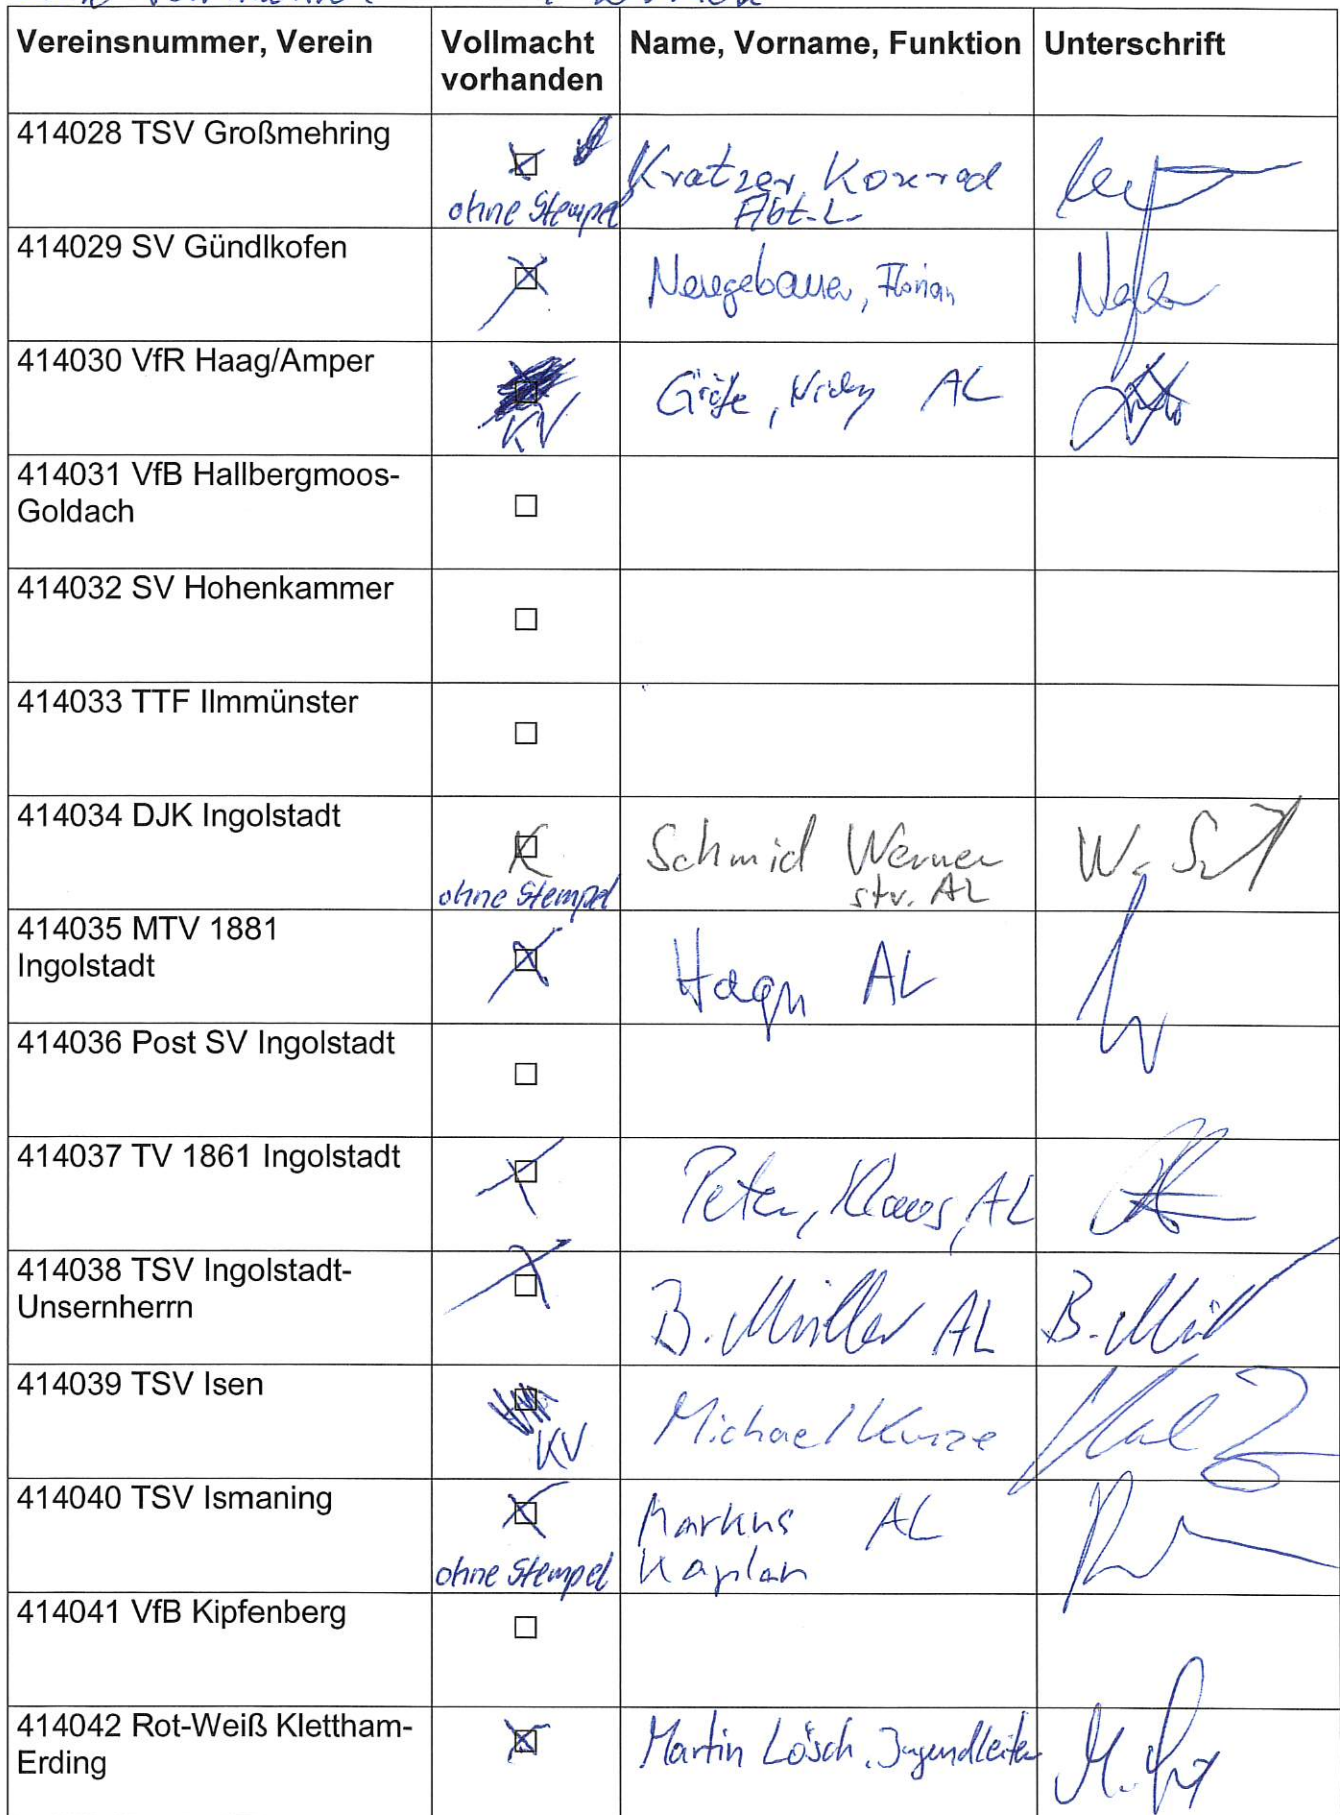 Vereinsnummer, Verein Vollmacht vorhanden Name, Vorname, Funktion Unterschrift
414028 TSV Großmehring ☒ ohne Stempel Kratzer Konrad Abt.L.
414029 SV Gündlkofen ☒ Neugebauer, Florian
414030 VfR Haag/Amper KV AL
414031 VfB Hallbergmoos-
Goldach ☐
414032 SV Hohenkammer ☐
414033 TTF Ilmmünster ☐
414034 DJK Ingolstadt ☒ ohne Stempel Schmid Werner stv. AL
414035 MTV 1881
Ingolstadt ☒ Hagn AL
414036 Post SV Ingolstadt ☐
414037 TV 1861 Ingolstadt ☒ Peter, Klaus, AL
414038 TSV Ingolstadt-
Unsernherrn ☒ B. Müller AL B. Mül
414039 TSV Isen KV Michael Kunze
414040 TSV Ismaning ☒ ohne Stempel Markus Kaplan AL
414041 VfB Kipfenberg ☐
414042 Rot-Weiß Klettham-
Erding ☒ Martin Lösch, Jugendleiter